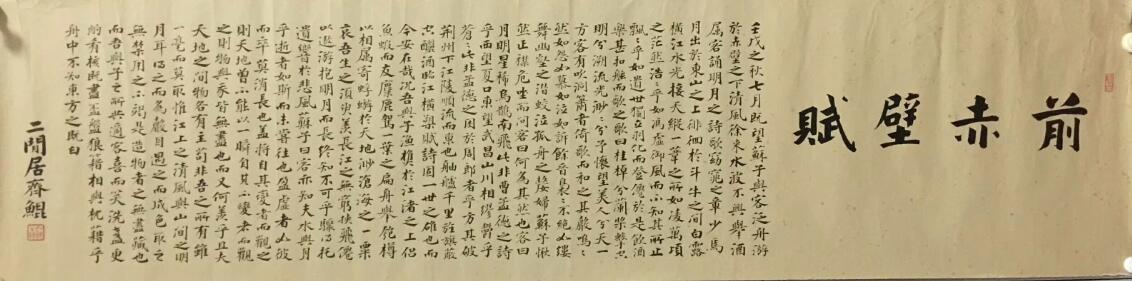 前赤壁賦
壬戌之秋七月既望蘇子與客泛舟游
於赤壁之下清風徐來水波不興舉酒
属客誦明月之詩歌窈窕之章少焉
月出於東山之上徘徊於斗牛之間白露
橫江水光接天縱一葦之所如凌萬頃
之茫然浩浩乎如馮虛御風而不知其所止
飄飄乎如遺世獨立羽化而登僊於是飲酒
樂甚扣舷而歌之歌曰桂棹兮蘭槳擊空
明兮溯流光渺渺兮予懷望美人兮天一
方客有吹洞簫者倚歌而和之其聲嗚嗚
然如怨如慕如泣如訴餘音裊裊不絕如縷
舞幽壑之潛蛟泣孤舟之嫠婦蘇子愀
然正襟危坐而問客曰何為其然也客曰
月明星稀烏鵲南飛此非曹孟德之詩
乎西望夏口東望武昌山川相繆鬱乎
蒼蒼此非孟德之困於周郎者乎方其破
荊州下江陵順流而東也舳艫千里旌旗蔽
空釃酒臨江橫槊賦詩固一世之雄也而
今安在哉況吾與子漁樵於江渚之上侶
魚蝦而友麋鹿駕一葉之扁舟舉匏樽
以相屬寄蜉蝣於天地渺滄海之一粟
哀吾生之須臾羨長江之無窮挾飛僊
以遨游抱明月而長終知不可乎驟得托
遺響於悲風蘇子曰客亦知夫水與月
乎逝者如斯而未嘗往也盈虛者如彼
而卒莫消長也蓋將自其變者而觀之
則天地曾不能以一瞬自其不變者而觀
之則物與我皆無盡也而又何羨乎且夫
天地之間物各有主苟非吾之所有雖
一毫而莫取惟江上之清風與山間之明
月耳得之而為聲目遇之而成色取之
無禁用之不竭是造物者之無盡藏也
而吾與子之所共適客喜而笑洗盞更
酌肴核既盡杯盤狼籍相與枕藉乎
舟中不知東方之既白
二閒居齋鯤